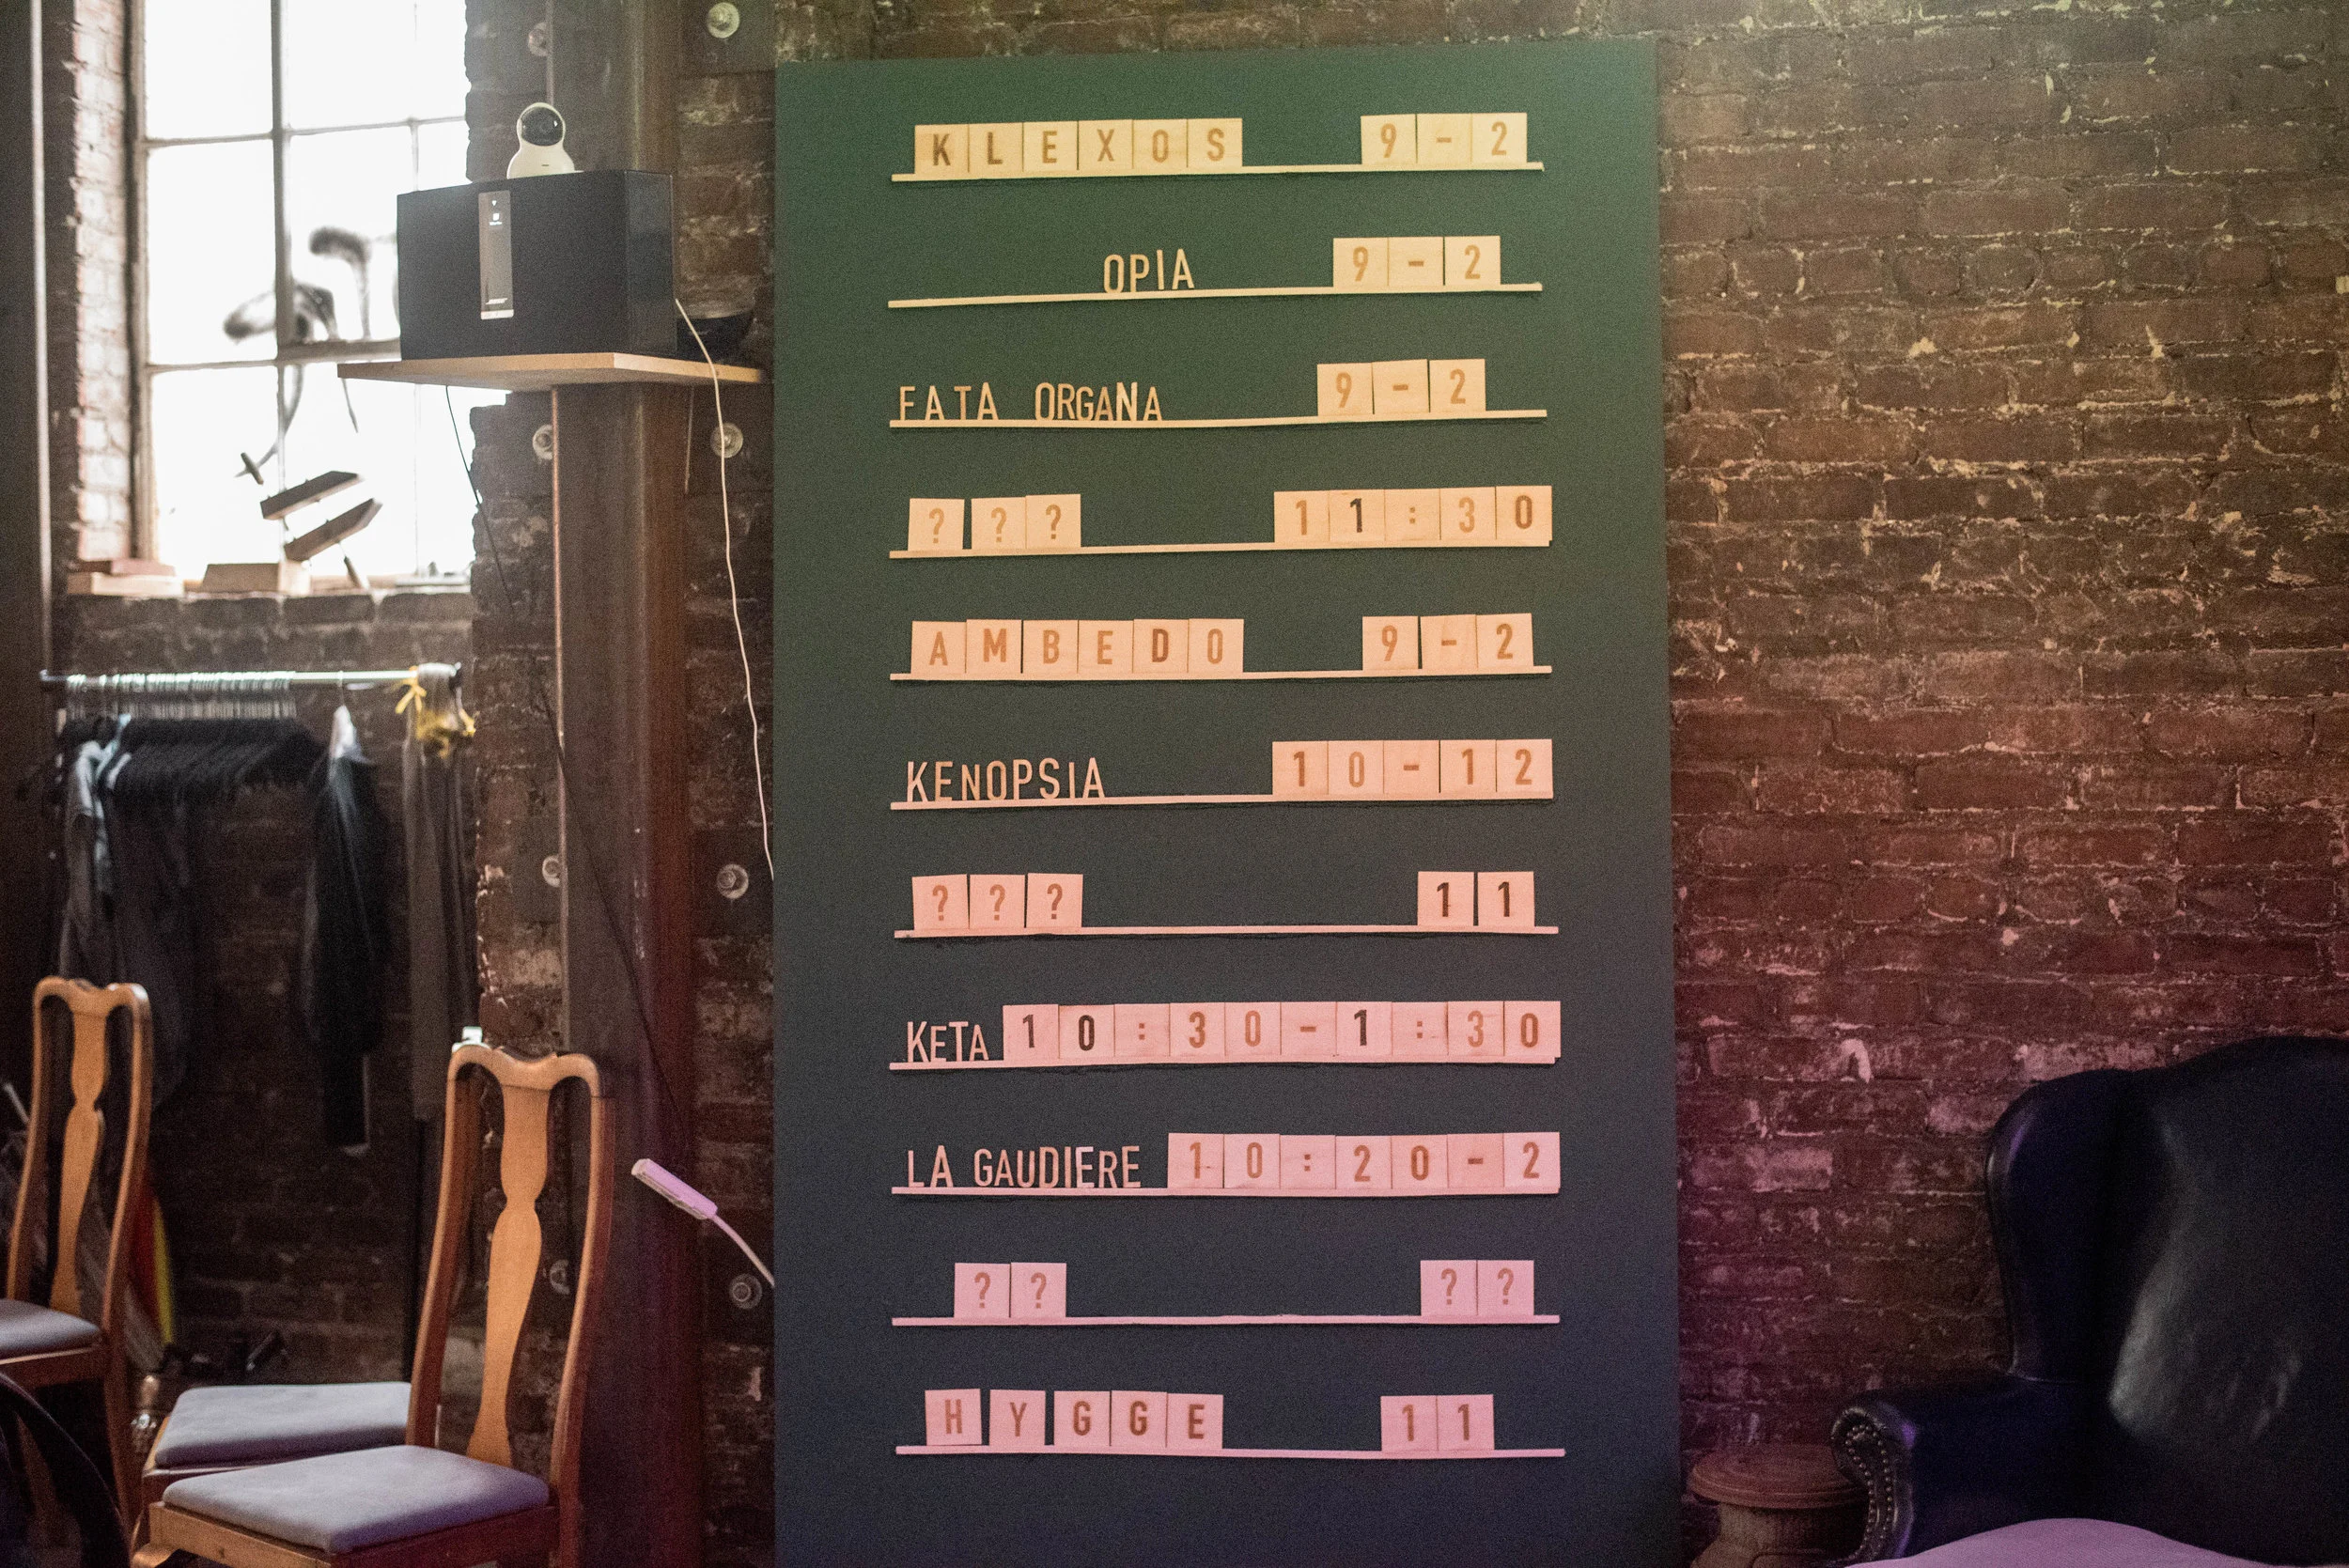 KLEXOS 9-2
OPIA 9-2
FATA ORGANA 9-2
??? 11:30
AMBEDO 9-2
KENOPSIA 10-12
??? 11
KETA 10:30-1:30
LA GAUDIERE 10:20-2
?? ??
HYGGE 11